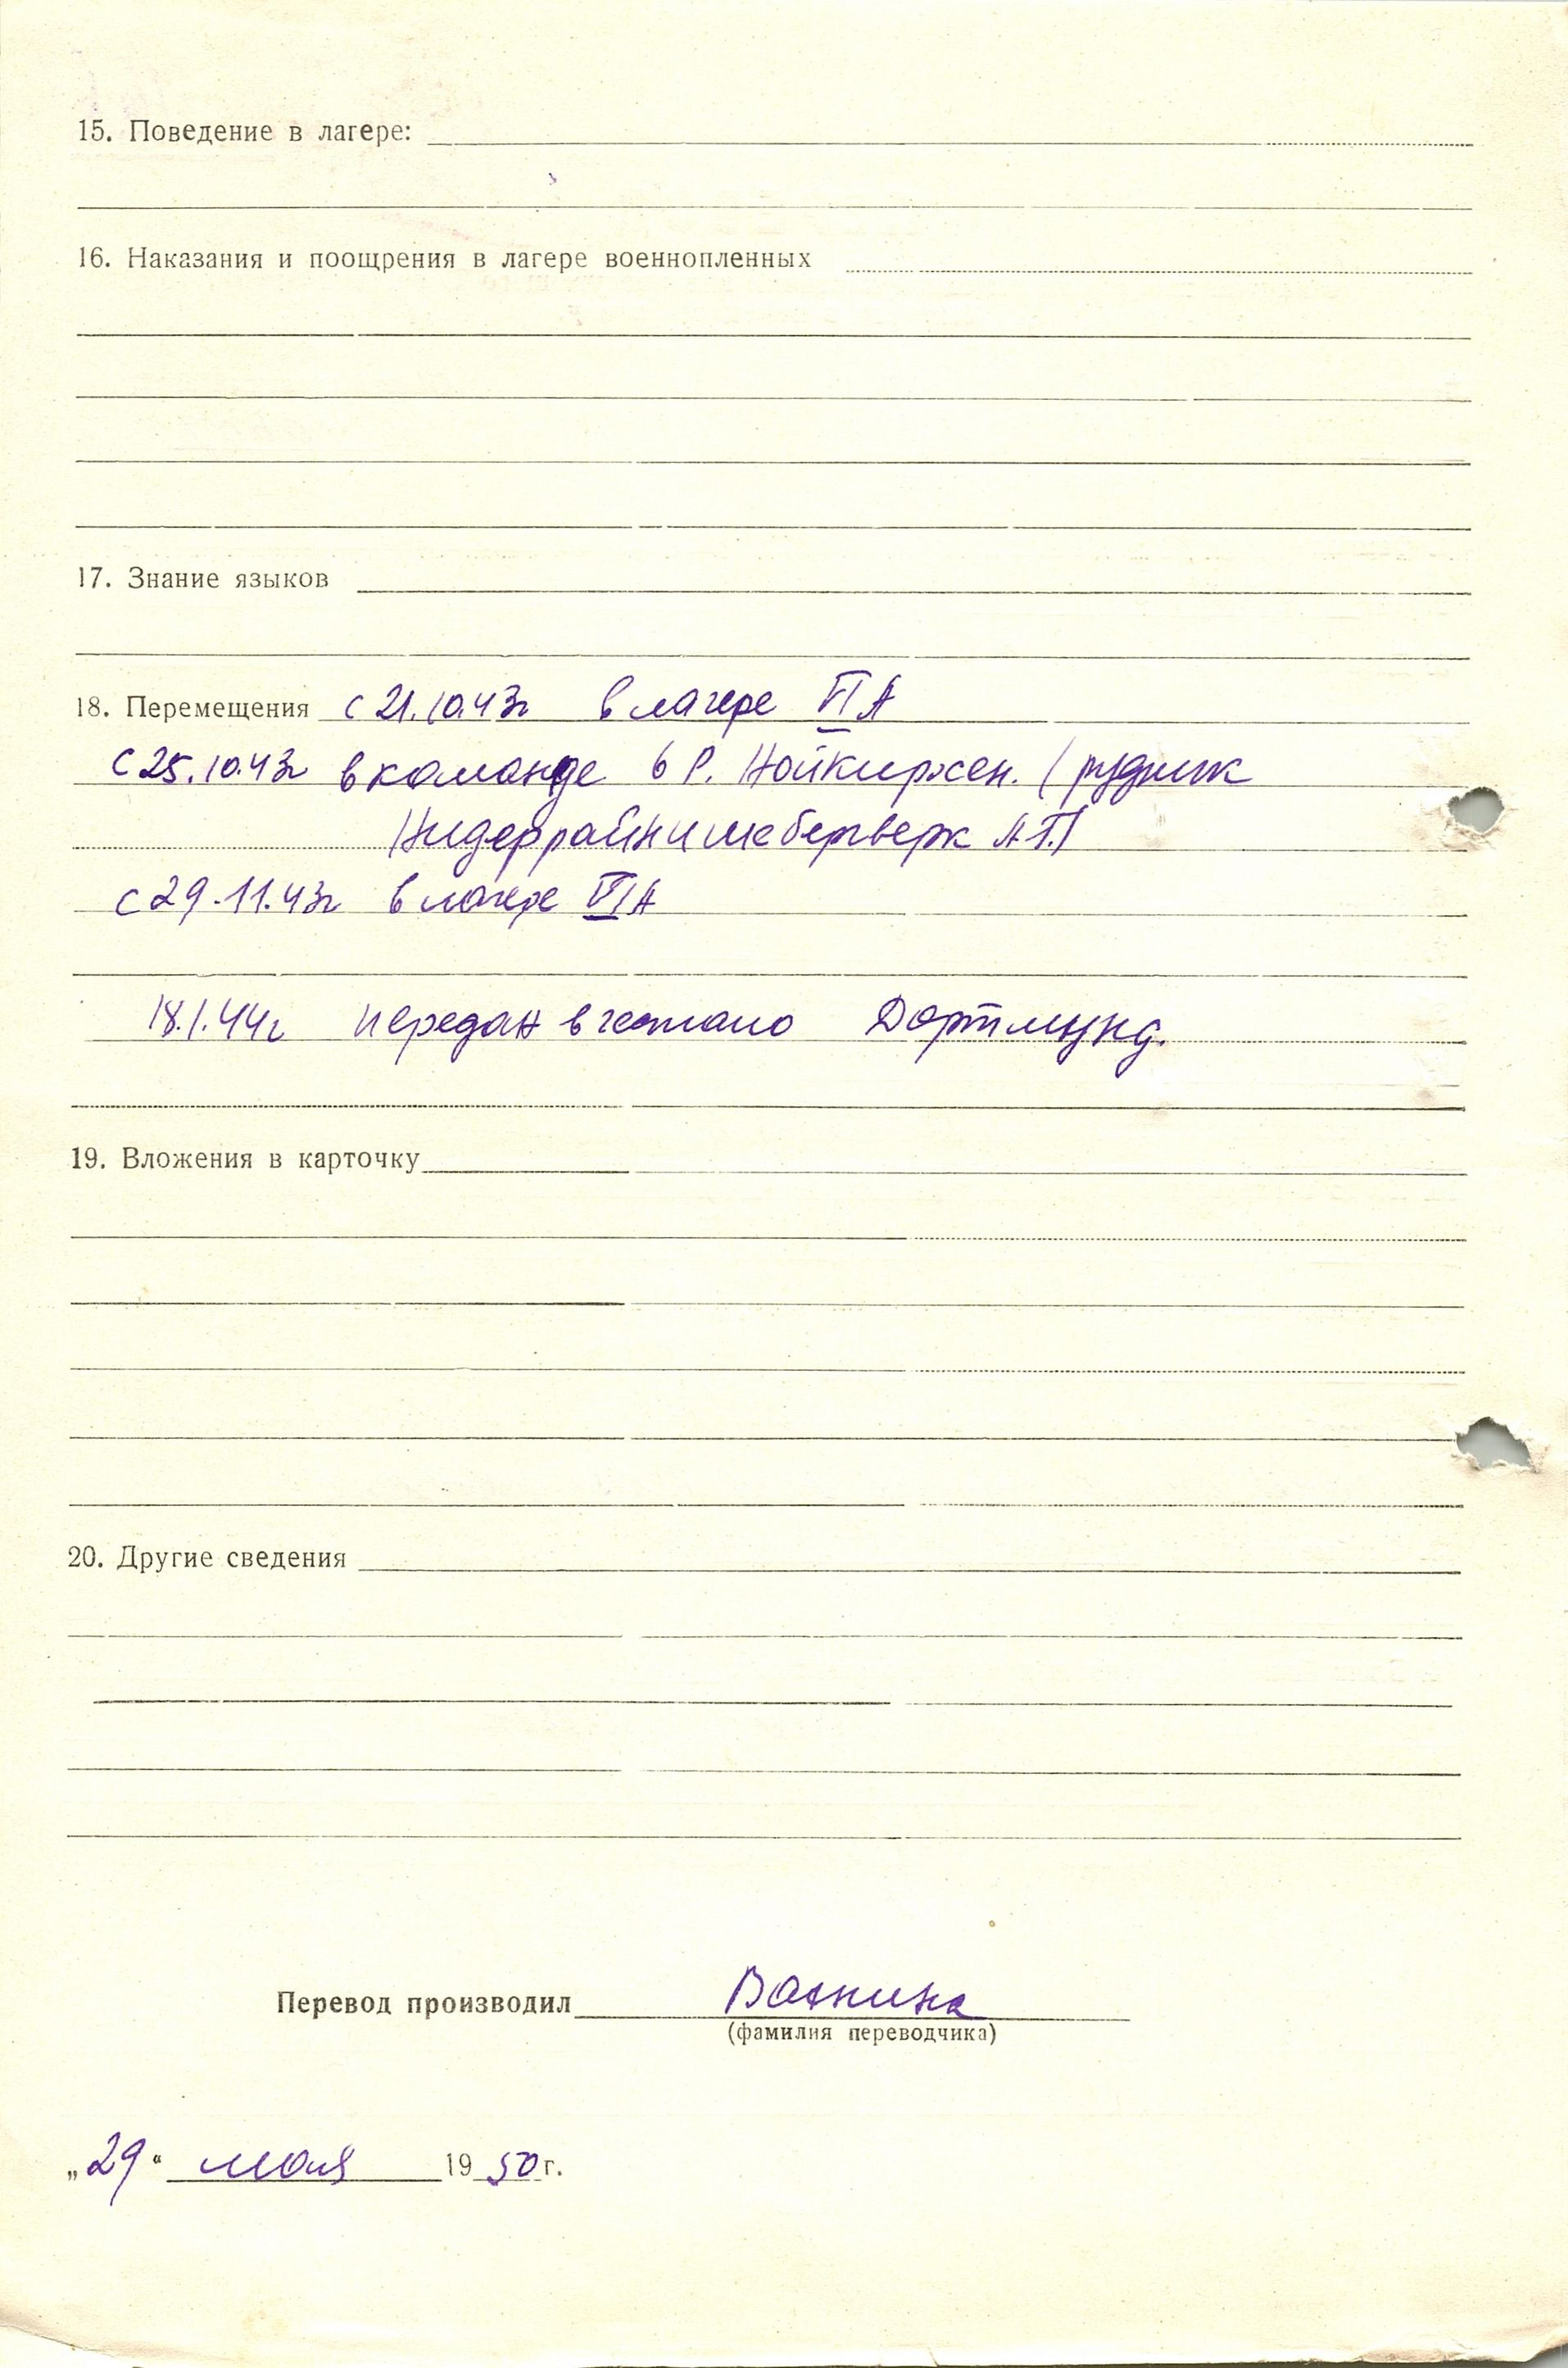 15. Поведение в лагере:
16. Наказания и поощрения в лагере военнопленных
17. Знание языков
18. Перемещения с 21.10.43г в лагере VI А
с 25.10.43г в команде 6 Р. Нойкирхен. (рудник
Нидеррайнишебергверк А.Г.)
с 29.11.43г в лагере VI А
18.1.44г передан в гестапо Дортмунд.
19. Вложения в карточку
20. Другие сведения
Перевод производил
(фамилия переводчика)
„29“ мая 1950 г.